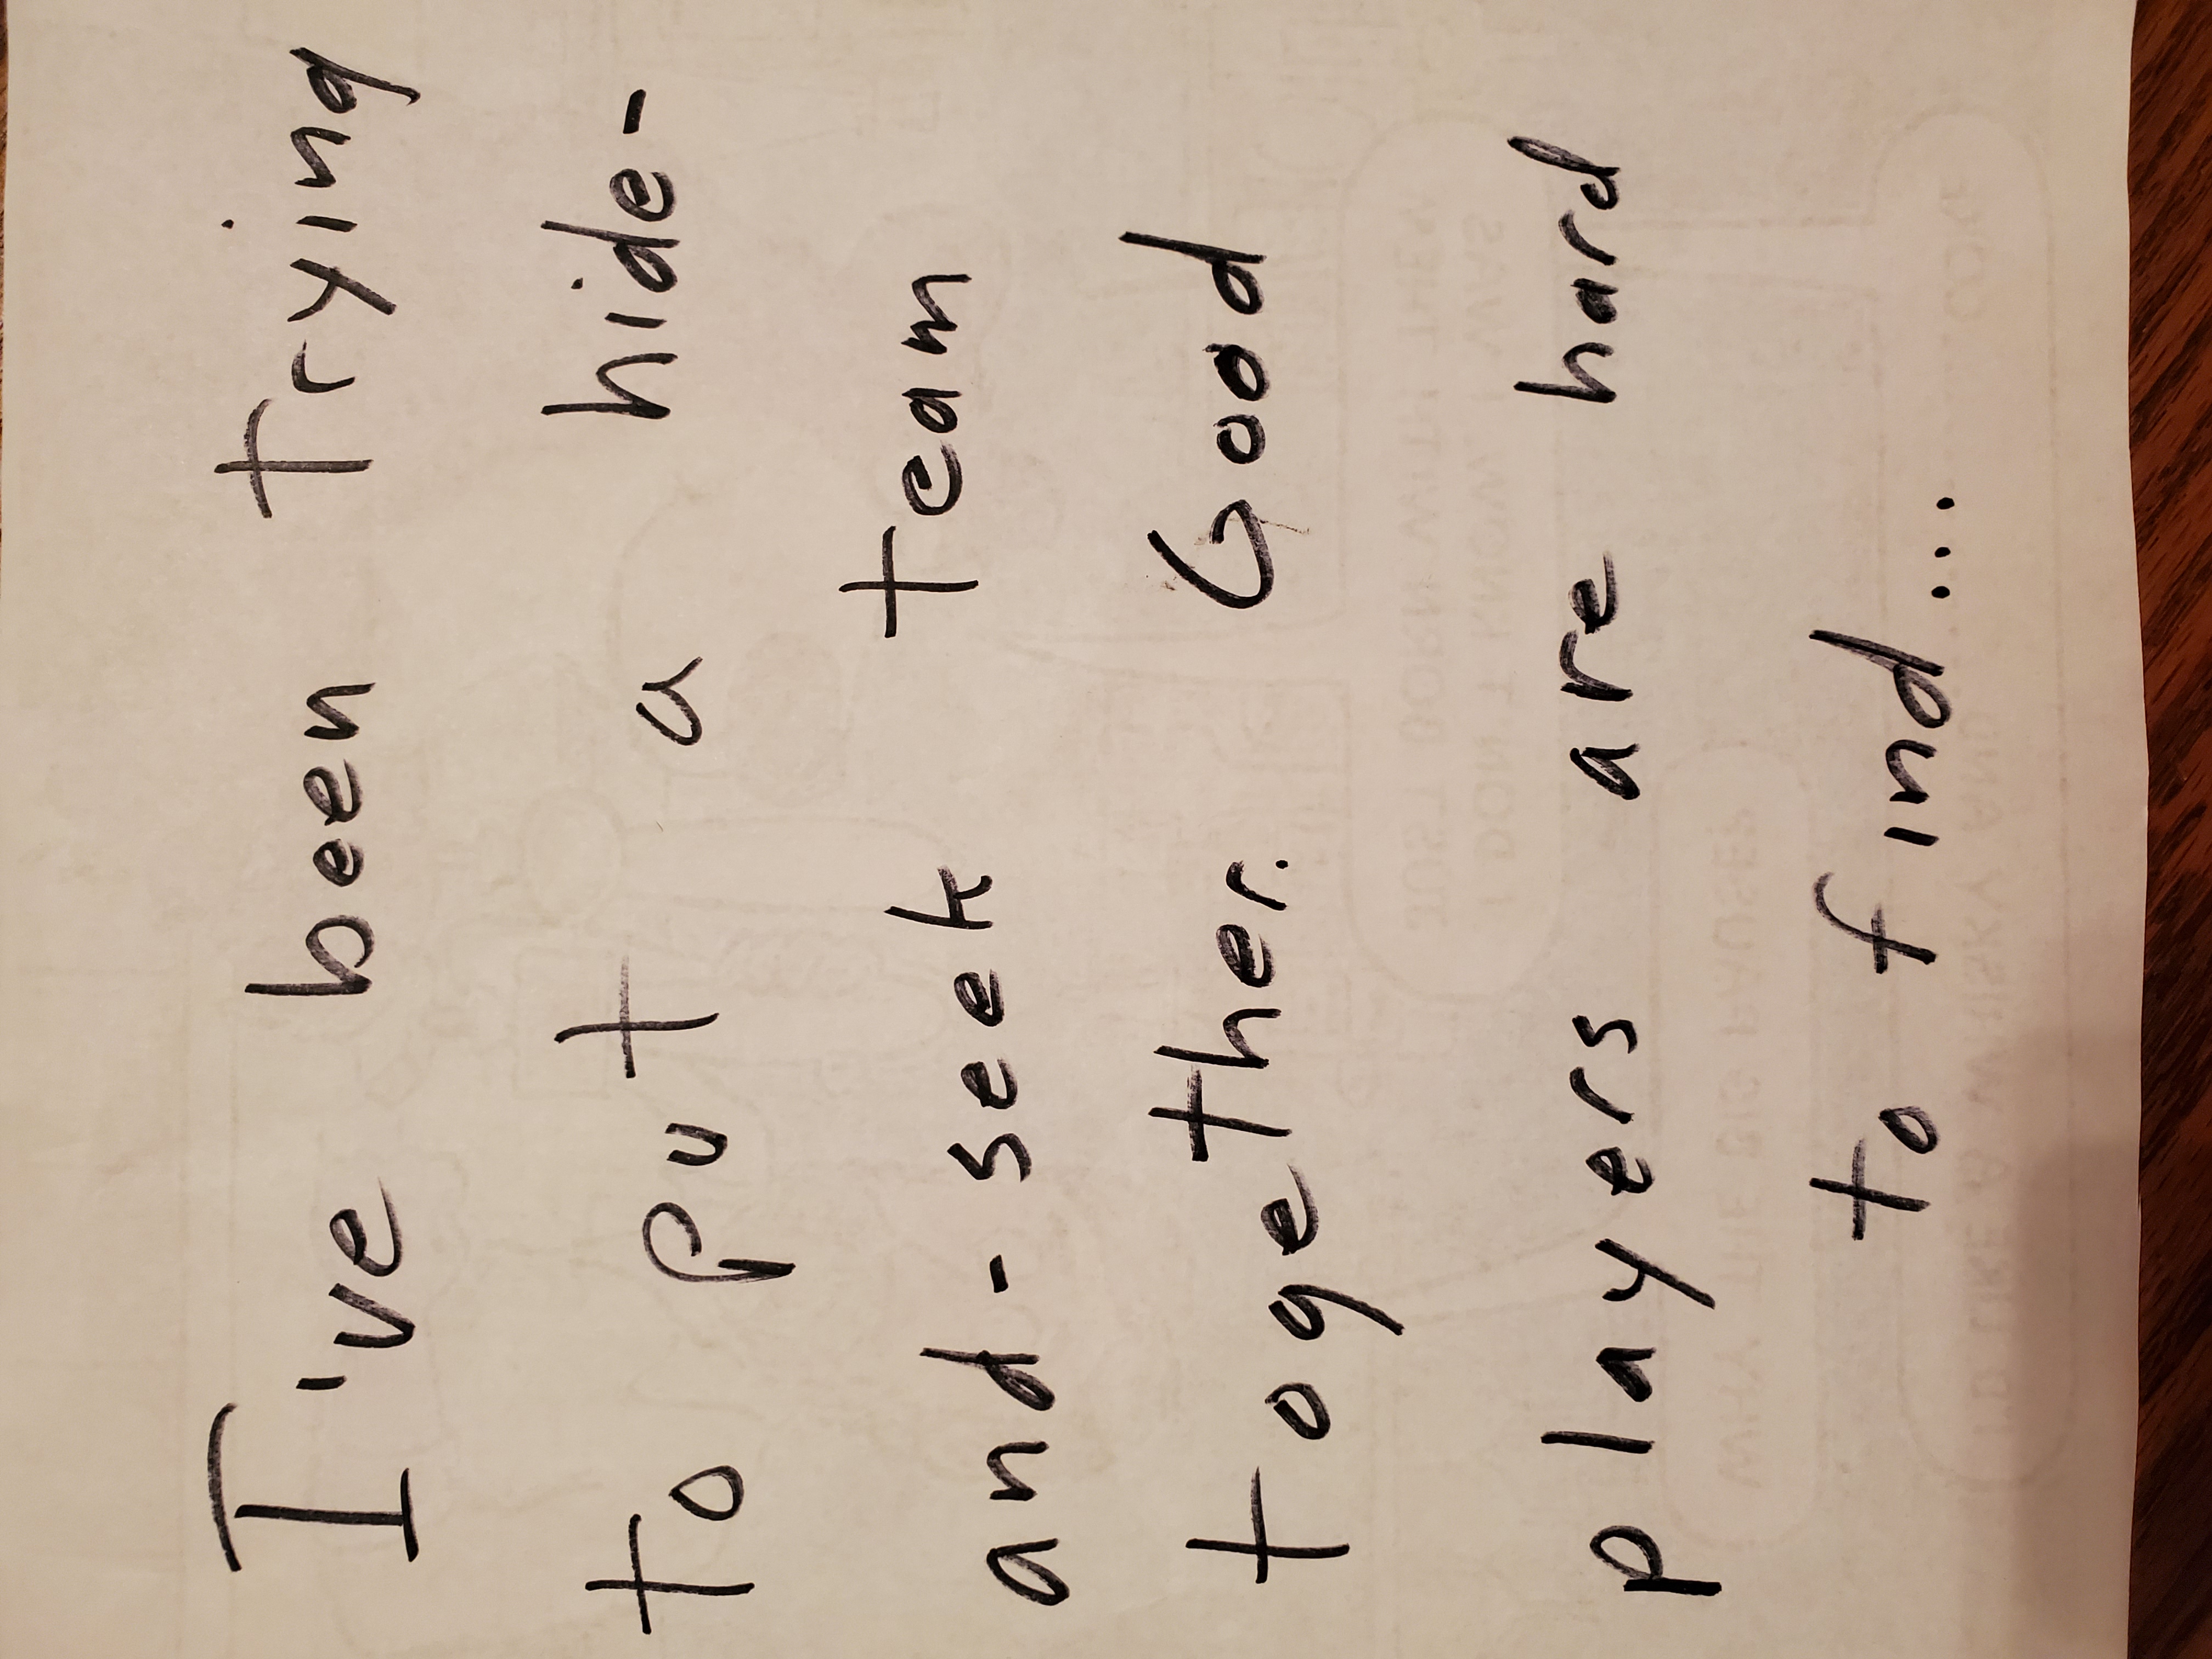 I've been trying
to put a hide-
and-seek team
together. Good
players are hard
to find...